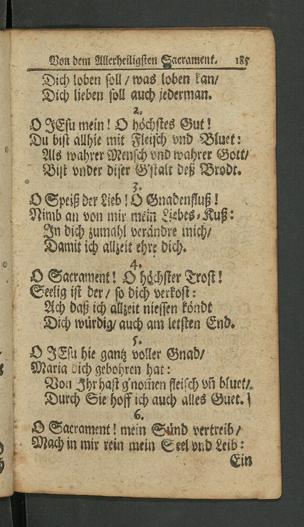 Von dem Allerheiligsten Sacrament. 185
Dich loben soll / was loben kan /
Dich lieben soll auch jederman.
2.
O JEsu mein! O höchstes Gut!
Du bist allhie mit Fleisch vnd Bluet:
Als wahrer Mensch vnd wahrer Gott /
Bist vnder diser G'stalt deß Brodt.
3.
O Speiß der Lieb! O Gnadenfluß!
Nimb an von mir mein Liebes-Kuß:
In dich zumahl verändre mich /
Damit ich allzeit ehre dich.
4.
O Sacrament! O höchster Trost!
Seelig ist der / so dich verkost:
Ach daß ich allzeit niessen köndt
Dich würdig / auch am letsten End.
5.
O JEsu hie gantz voller Gnad /
Maria dich gebohren hat:
Von Ihr hast g'nom̃en fleisch vñ bluet /
Durch Sie hoff ich auch alles Guet.
6.
O Sacrament! mein Sünd vertreib /
Mach in mir rein mein Seel vnd Leib:
Ein